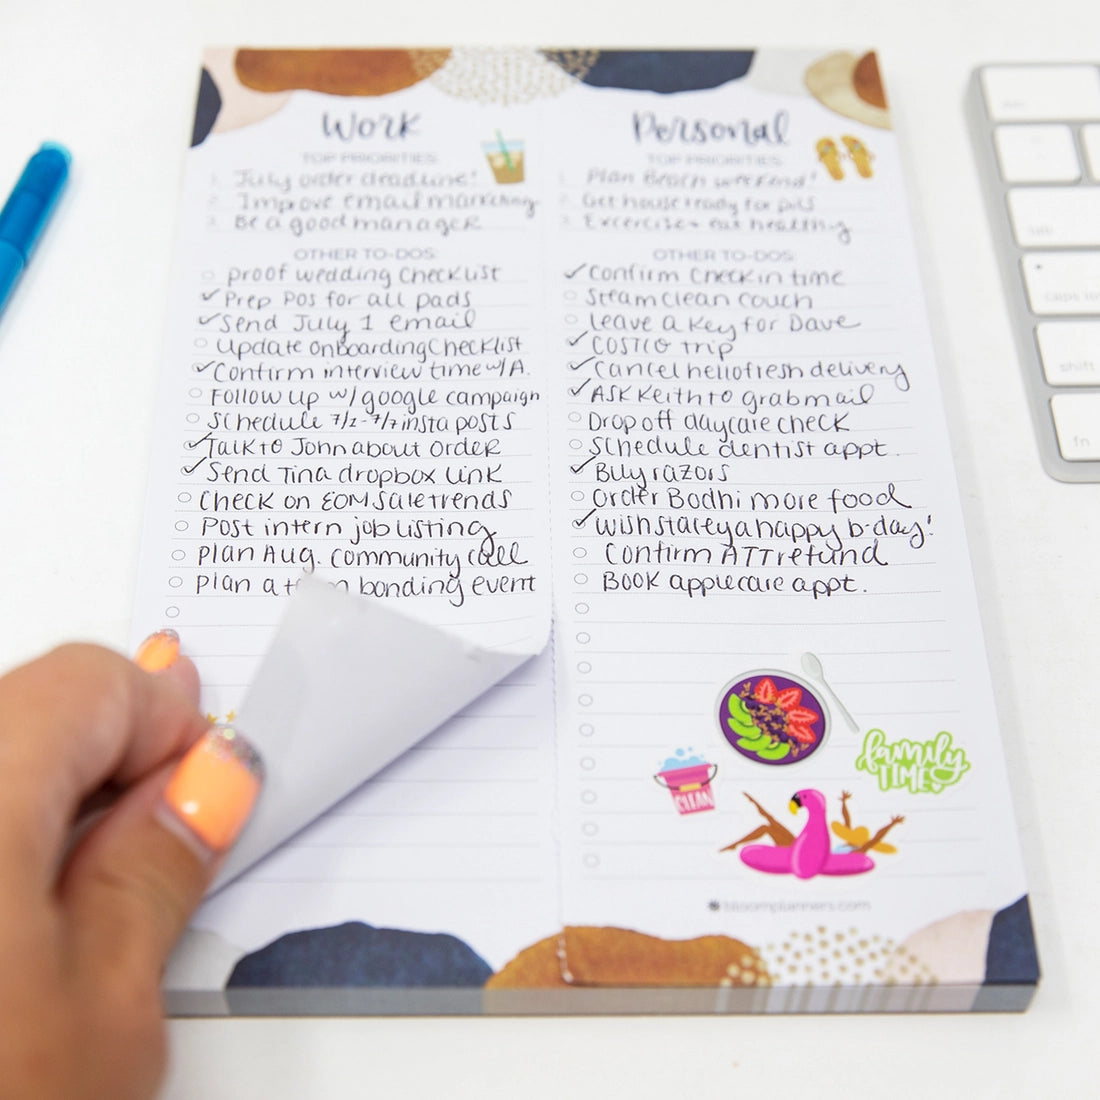 Work
TOP PRIORITIES:
1. July order deadline!
2. Improve email marketing
3. Be a good manager
OTHER TO-DOS:
proof wedding checklist
Prep POs for all pads
Send July 1 email
Update onboarding checklist
Confirm interview time w/ A.
Follow up w/ google campaign
Schedule 7/1-7/7 insta posts
Talk to John about order
Send Tina dropbox link
Check on EOM sale trends
Post intern job listing
Plan Aug. community call
Plan a bonding event
Personal
TOP PRIORITIES:
1. Plan Beach weekend!
2. Get house ready for pics
3. Excercise + eat healthy
OTHER TO-DOS:
Confirm Check in time
Steam clean couch
Leave a key for Dave
COSTCO trip
Cancel hellofresh delivery
Ask Keith to grab mail
Drop off daycare check
Schedule dentist appt.
Buy razors
Order Bodhi more food
Wish stacey a happy b-day!
Confirm ATT refund
Book applecare appt.
CLEAN
family
TIME
bloomplanners.com
caps lock
shift
fn